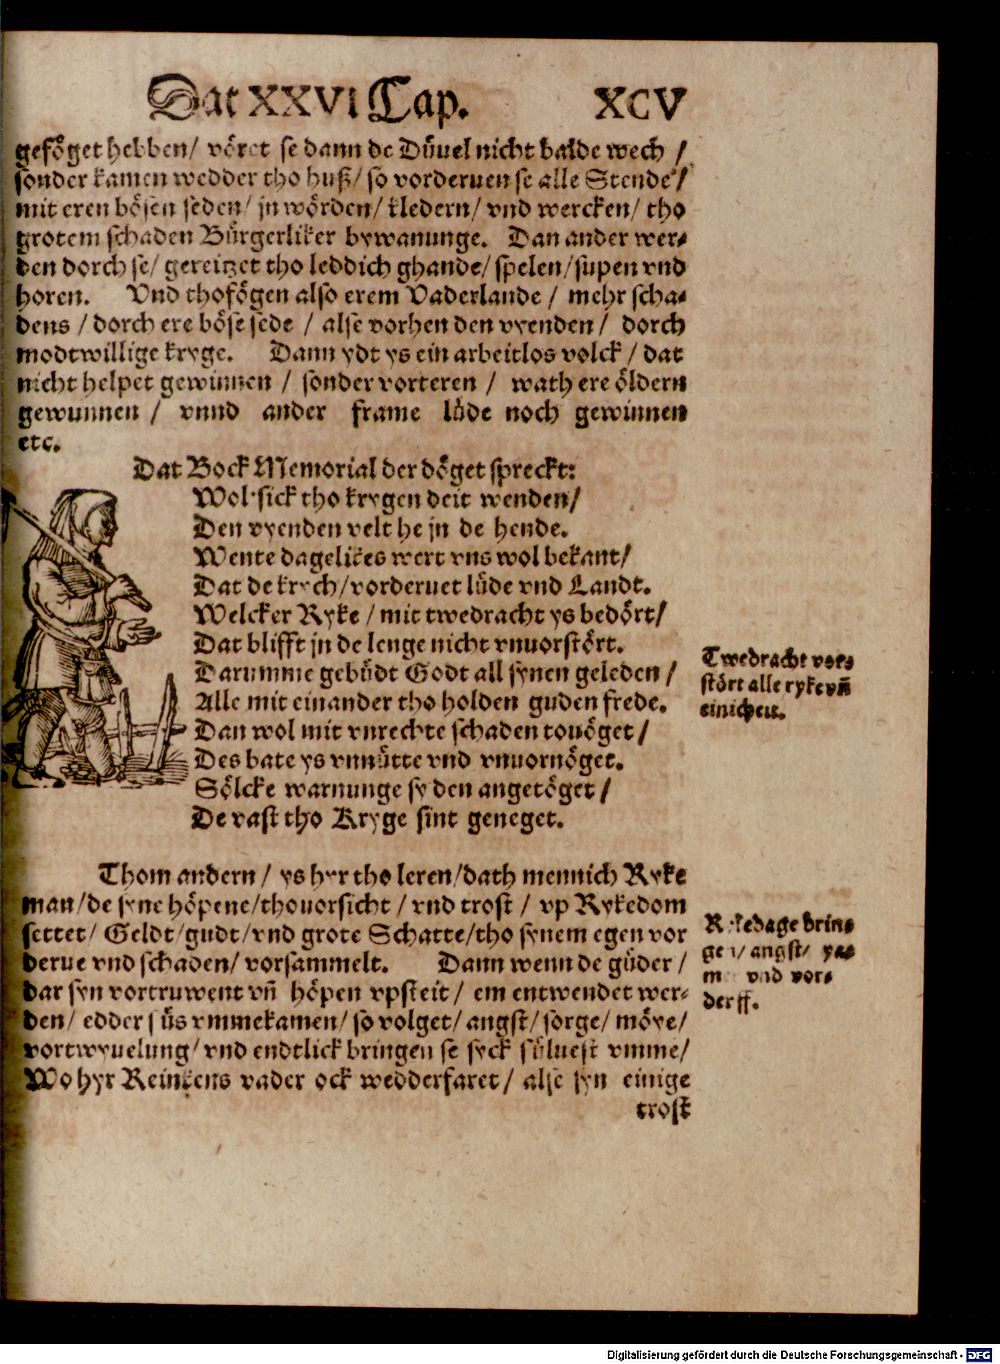 Dat XXVI Cap. XCV
geföget hebben/ vöret se dann de Düuel nicht balde wech /
sonder kamen wedder tho huß/ so vorderuen se alle Stende /
mit eren bösen seden/ jn wörden/ kledern/ vnd wercken/ tho
grotem schaden Bürgerliker bywanunge. Dan ander wer⸗
den dorch se/ gereitzet tho leddich ghande/ spelen/ supen vnd
horen. Vnd thofögen also erem Vaderlande / mehr scha⸗
dens / dorch ere böse sede / alse vorhen den vyenden / dorch
modtwillige kryge. Dann ydt ys ein arbeitlos volck / dat
nicht helpet gewinnen / sonder vorteren / wath ere öldern
gewunnen / vnnd ander frame lüde noch gewinnen
etc.
Dat Bock Memorial der döget spreckt:
Wol sick tho krygen deit wenden/
Den vyenden velt he jn de hende.
Wente dagelikes wert vns wol bekant/
Dat de krych/ vorderuet lüde vnd Landt.
Welcker Ryke / mit twedracht ys bedört/
Dat blifft jn de lenge nicht vnuorstört.
Darumme gebüdt Godt all synen geleden /
Alle mit einander tho holden guden frede.
Dan wol mit vnrechte schaden touöget /
Des bate ys vnnütte vnd vnuornöget.
Sölcke warnunge sy den angetöget /
De vast tho Kryge sint geneget.
Twedracht vor⸗
stört alle ryke vñ
einicheit.
Thom andern/ ys hyr tho leren/ dath mennich Ryke
man/ de syne höpene/ thouorsicht / vnd trost / vp Rykedom
settet/ Geldt/ gudt/ vnd grote Schatte/ tho synem egen vor
derue vnd schaden/ vorsammelt. Dann wenn de güder /
dar syn vortruwent vñ höpen vpsteit / em entwendet wer⸗
den/ edder süs vmmekamen/ so volget/ angst/ sorge/ möye/
vortwyuelung/ vnd endtlick bringen se syck süluest vmme/
Wo hyr Reinkens vader ock wedderfaret/ alse syn einige
trost
Rykedage brin⸗
gen/ angst/
vnd vor⸗
derff.
Digitalisierung gefördert durch die Deutsche Forschungsgemeinschaft - DFG